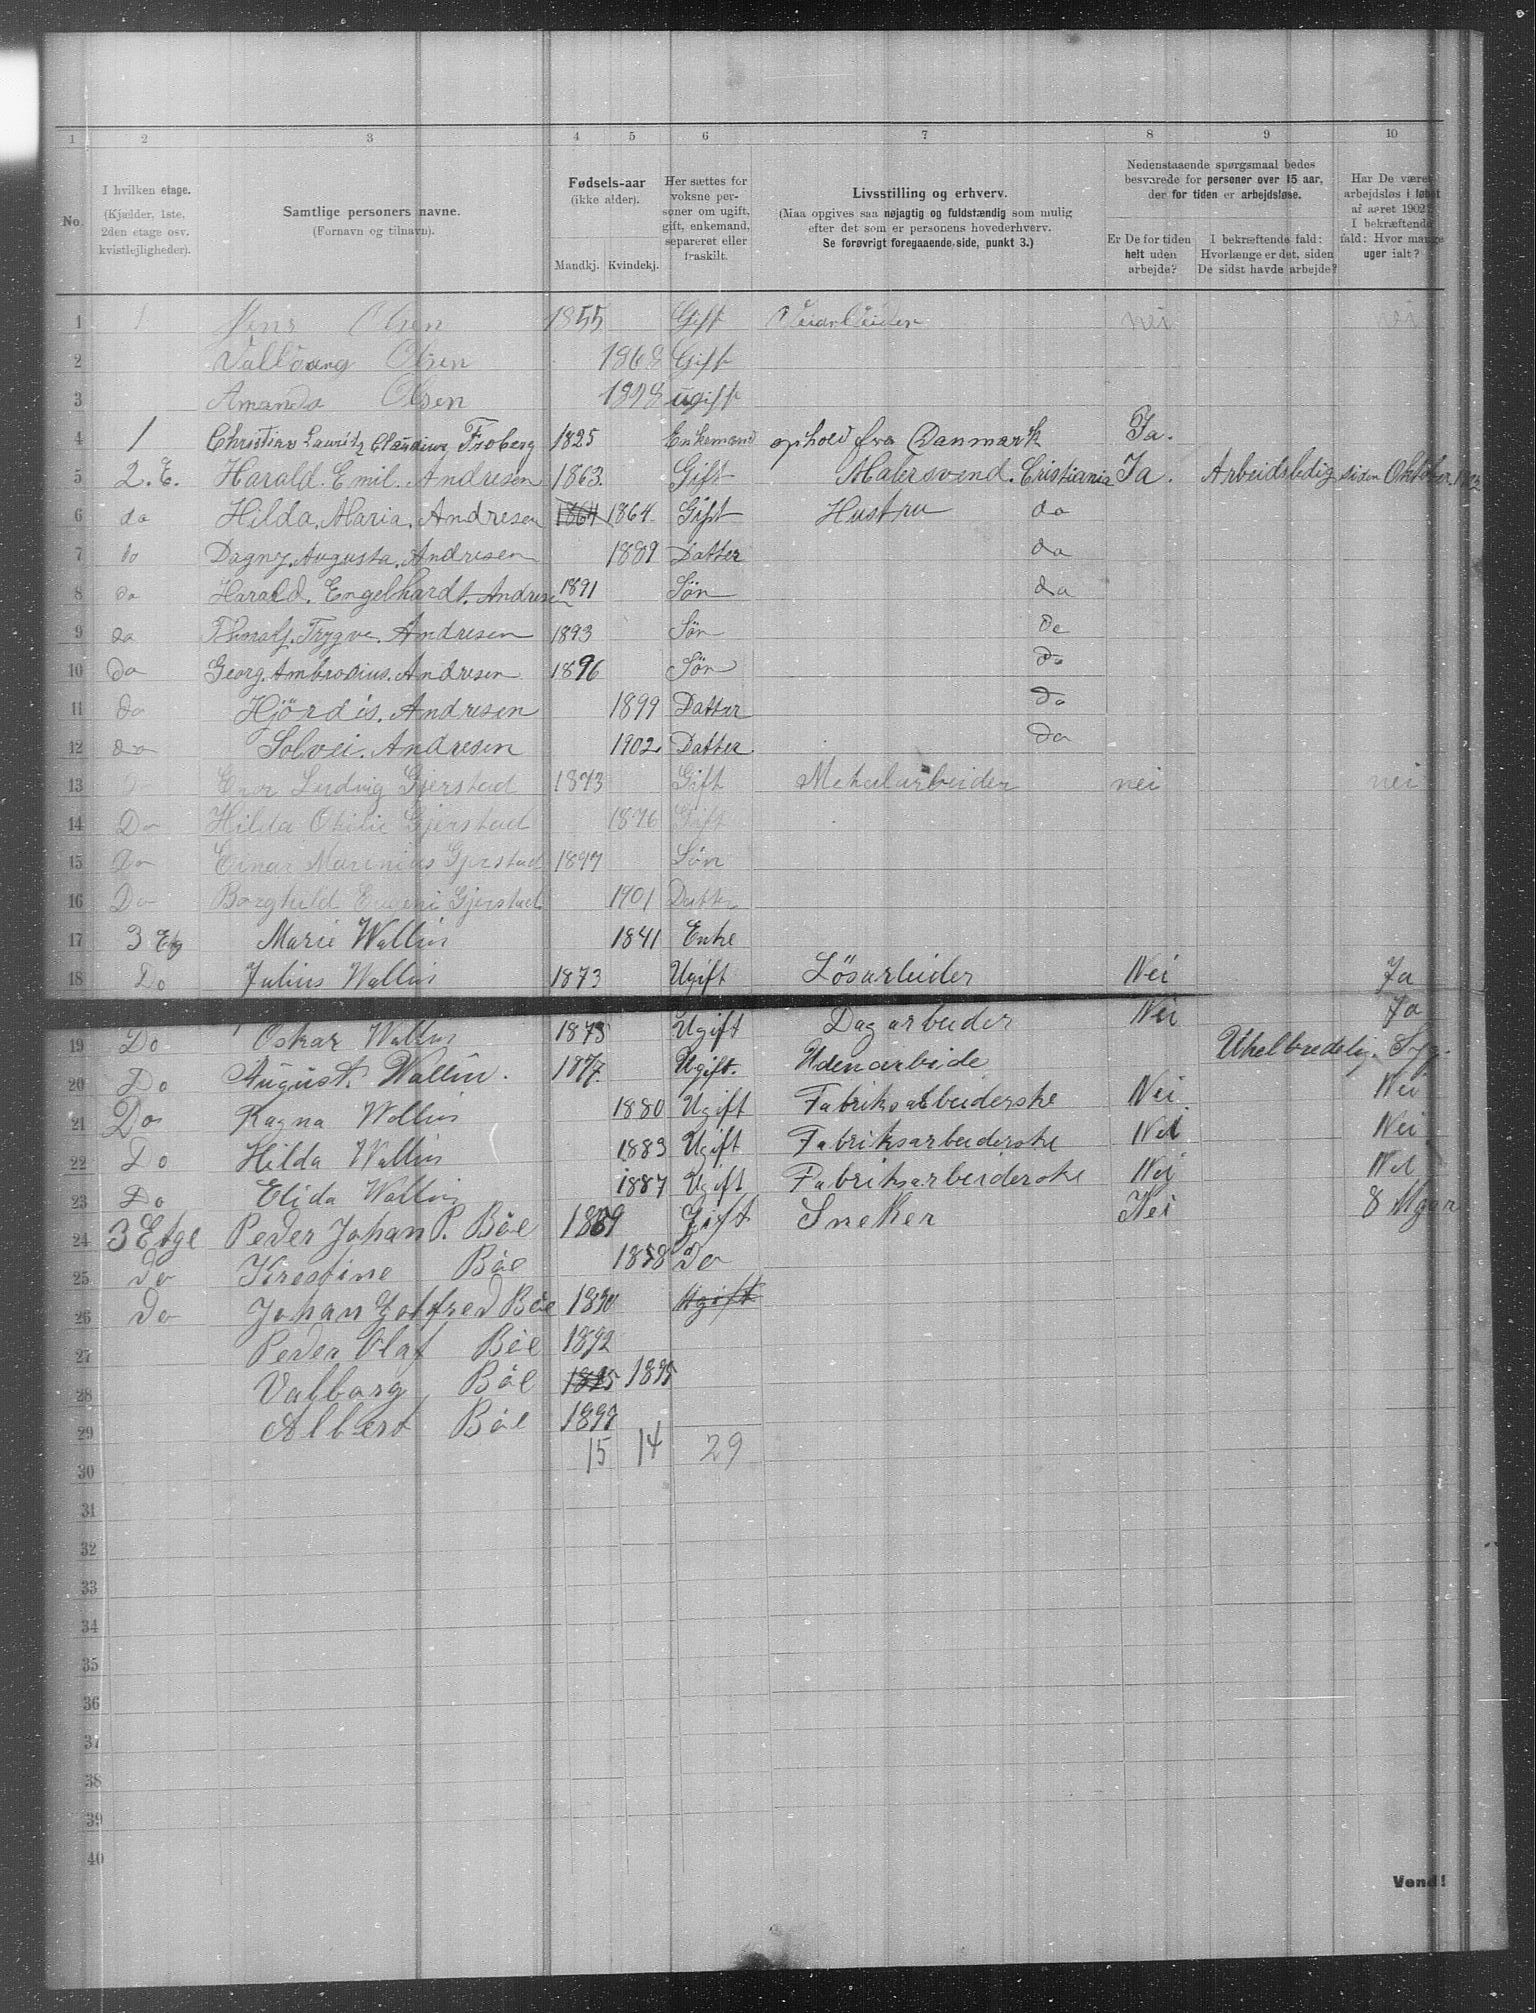 1 2 3 4 5 6 7 8 9 10
No.
I hvilken etage.
(Kjælder, 1ste, 2den etage osv. kvistlejligheder).
Samtlige personers navne.
(Fornavn og tilnavn).
Fødsels-aar
(ikke alder).
Mandkj. Kvindekj.
Her sættes for voksne personer om ugift, gift, enkemand, separeret eller fraskilt.
Livsstilling og erhverv.
(Maa opgives saa nøjagtig og fuldstændig som mulig efter det som er personens hovederhverv.
Se forøvrigt foregaaende side, punkt 3.)
Nedenstaaende spørgsmaal bedes besvarede for personer over 15 aar, der for tiden er arbejdsløse.
Er De for tiden helt uden arbejde?
I bekræftende fald: Hvorlænge er det, siden De sidst havde arbejde?
Har De været arbejdsløs i løbet af aaret 1902? I bekræftende fald: Hvor mange uger ialt?
1 1 Jens Olsen 1855 Gift Veiarbeider nei nei
2 Valborg Olsen 1868 Gift
3 Amanda Olsen 1898 ugift
4 1 Christian Lauritz Claudius Froberg 1825 Enkemand ophold fra Danmark Ja.
5 2. E. Harald. Emil. Andresen 1863. Gift Malersvend. Cristiania Ja. Arbeidsledig siden Oktober 1902
6 do Hilda. Maria. Andresen 1864 1864. Gift Hustru do
7 do Dagny. Augusta. Andresen 1889 Datter do
8 do Harald. Engelhardt. Andresen 1891 Søn do
9 do Thoralf. Trygve. Andresen 1893 Søn do
10 do Georg. Ambrosius. Andresen 1896 Søn do
11 do Hjördis. Andresen 1899 Datter do
12 do Solvei. Andresen 1902. Datter do
13 Ludvig Gjerstad 1873 Gift Metalarbeider nei nei
14 Do Hilda Otilie Gjerstad 1876 Gift
15 Do Einar Marinius Gjerstad 1897 Søn
16 Do Borghild Eugeni Gjerstad. 1901 Datter
17 3 Etg Marie Wallin 1841 Enke
18 Do Julius Wallin 1873 Ugift Løsarbeider Nei Ja
19 Do Oskar Wallin 1875 Ugift Dagarbeider Nei Ja
20 Do August. Wallin. 1877. Ugift. Udenarbeide Uhelbredelig. Syg.
21 Do Ragna Wallin 1880 Ugift Fabriksarbeiderske Nei Nei
22 Do Hilda Wallin 1883 Ugift Fabriksarbeiderske Nei Nei
23 Do Elida Wallin 1887 Ugift Fabriksarbeiderske Nei Nei
24 3 Etge Peder Johan P. Böe 1859 Gift Sneker Nei 8
25 Do Krestine Böe 1858 Do
26 Do Johan Gotfred Böe 1890 Ugift
27 Peder Olaf Böe 1892
28 Valborg Böe 1895 1895
29 Albert Böe 1897
30 15 14 29
31
32
33
34
35
36
37
38
39
40
Vend!